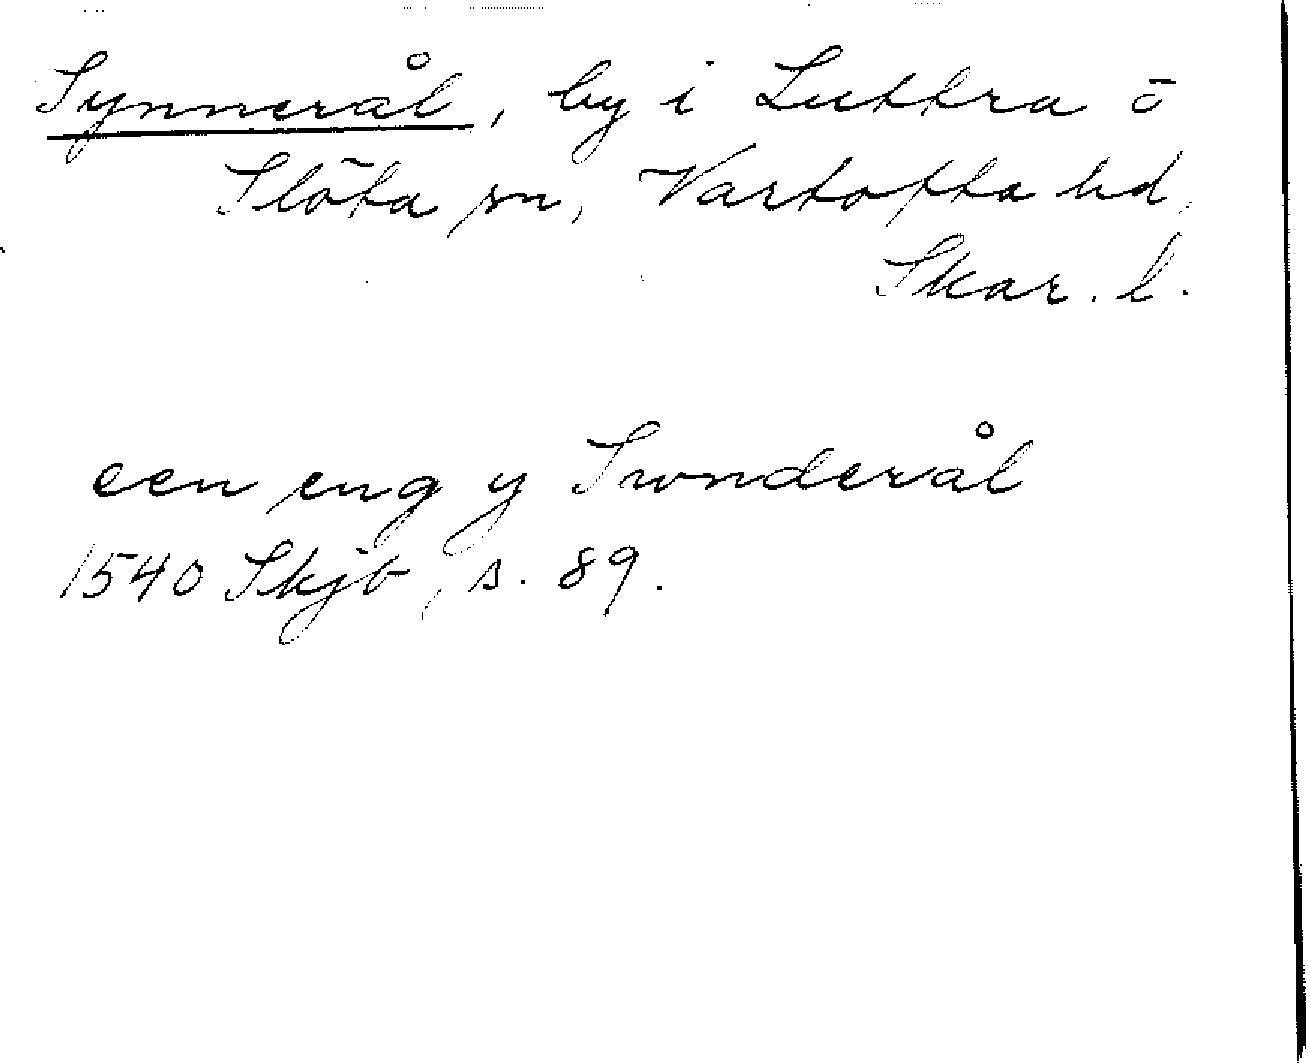 Synnerål, by i Luttra o
Slöta sn, Vartofta hd,
Skar. l.
een eng y Swnderål
1540 Skjb, s. 89.